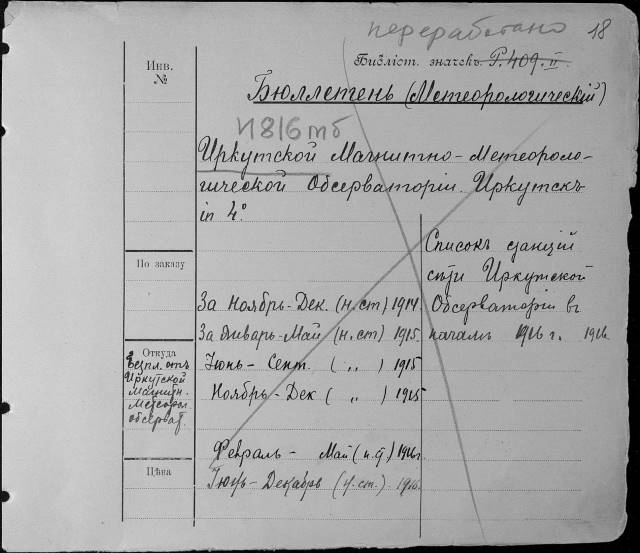 переработано 18
Инв. №
Библіот. значекъ Р.409.II.
Бюллетень (Метеорологическій)
И816тб
Иркутской Магнитно-Метеороло-
гической Обсерваторіи. Иркутскъ
in 4°.
По заказу
За Ноябрь-Дек. (н.ст) 1914.
За Январь-Май (н.ст) 1915.
Іюнь- Сент. ( ,, ) 1915
Ноябрь-Дек ( ,, ) 1915
Февраль- Май (н.ст) 1916г
Іюнь-Декабрь (н.ст.) 1916.
Списокъ станцій
сѣти Иркутской
Обсерваторіи въ
началѣ 1916 г. 1916
Откуда
Безпл. отъ
Иркутской
Магнитн.
Метеорол.
обсерват.
Цѣна